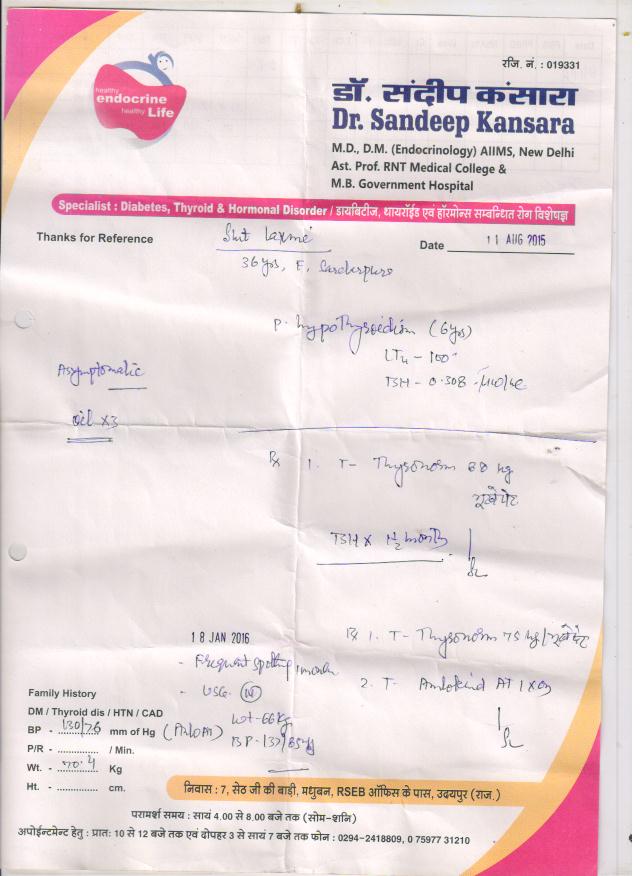 रजि. नं. : 019331
healthy
endocrine
healthy Life
डॉ. संदीप कंसारा
Dr. Sandeep Kansara
M.D., D.M. (Endocrinology) AIIMS, New Delhi
Ast. Prof. RNT Medical College &
M.B. Government Hospital
Specialist : Diabetes, Thyroid & Hormonal Disorder / डायबिटीज, थायरॉईड एवं हॉरमोन्स सम्बन्धित रोग विशेषज्ञ
Thanks for Reference
Smt Laxmi
Date 11 AUG 2015
36yrs, F, Sardarpura
P. hypothyroidism (6yrs)
LT4 - 100
TSH - 0.308
Asymptomatic
oil x3
Rx 1. T- Thyronorm 88 mg
भूखे पेट
TSH x 1 1/2 month
18 JAN 2016
Rx 1. T- Thyronorm 75 mg / भूखे पेट
- Frequent spotting
- USG. (N)
2. T- Amlokind AT 1 x OD
Family History
DM / Thyroid dis / HTN / CAD
Wt-66kg
BP - 130/76 mm of Hg
BP-137/85
P/R - .............. / Min.
Wt. - 70.4 Kg
Ht. - .............. cm.
निवास : 7, सेठ जी की बाड़ी, मधुबन, RSEB ऑफिस के पास, उदयपुर (राज.)
परामर्श समय : सायं 4.00 से 8.00 बजे तक (सोम-शनि)
अपोईन्टमेन्ट हेतु : प्रातः 10 से 12 बजे तक एवं दोपहर 3 से सायं 7 बजे तक फोन : 0294-2418809, 0 75977 31210